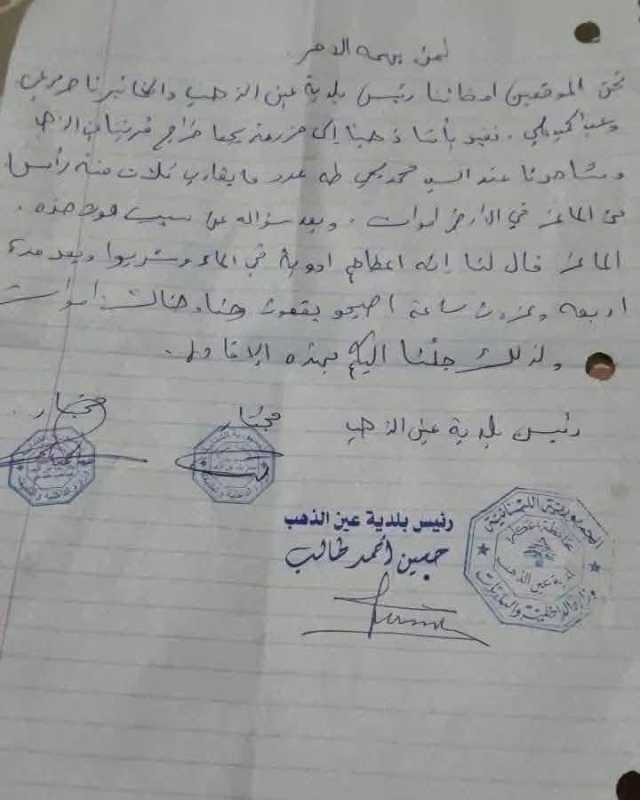 لمن يهمه الأمر
نحن الموقعين ادناه رئيس بلدية عين الذهب والمخاتير
نفيد بأننا ذهبنا إلى مزرعة خراج عين الذهب
وشاهدنا عند السيد محمد طه عدد ما يقارب ثلاث مئة رأس
من الماعز في الأرض اموات . وبعد سؤاله عن سبب موت هذه
الماعز قال لنا إنه اعطاهم ادوية في الماء وشربوا وبعد مدة
اربعه وعزون ساعة اصبحو يقعون هنا وهناك اموات
ولذلك جئنا اليكم بهذه الإفادة .
رئيس بلدية عين الذهب
مختار
مختار
رئيس بلدية عين الذهب
حسين أحمد طالب
الجمهورية اللبنانية
بلدية عين الذهب
وزارة الداخلية والبلديات